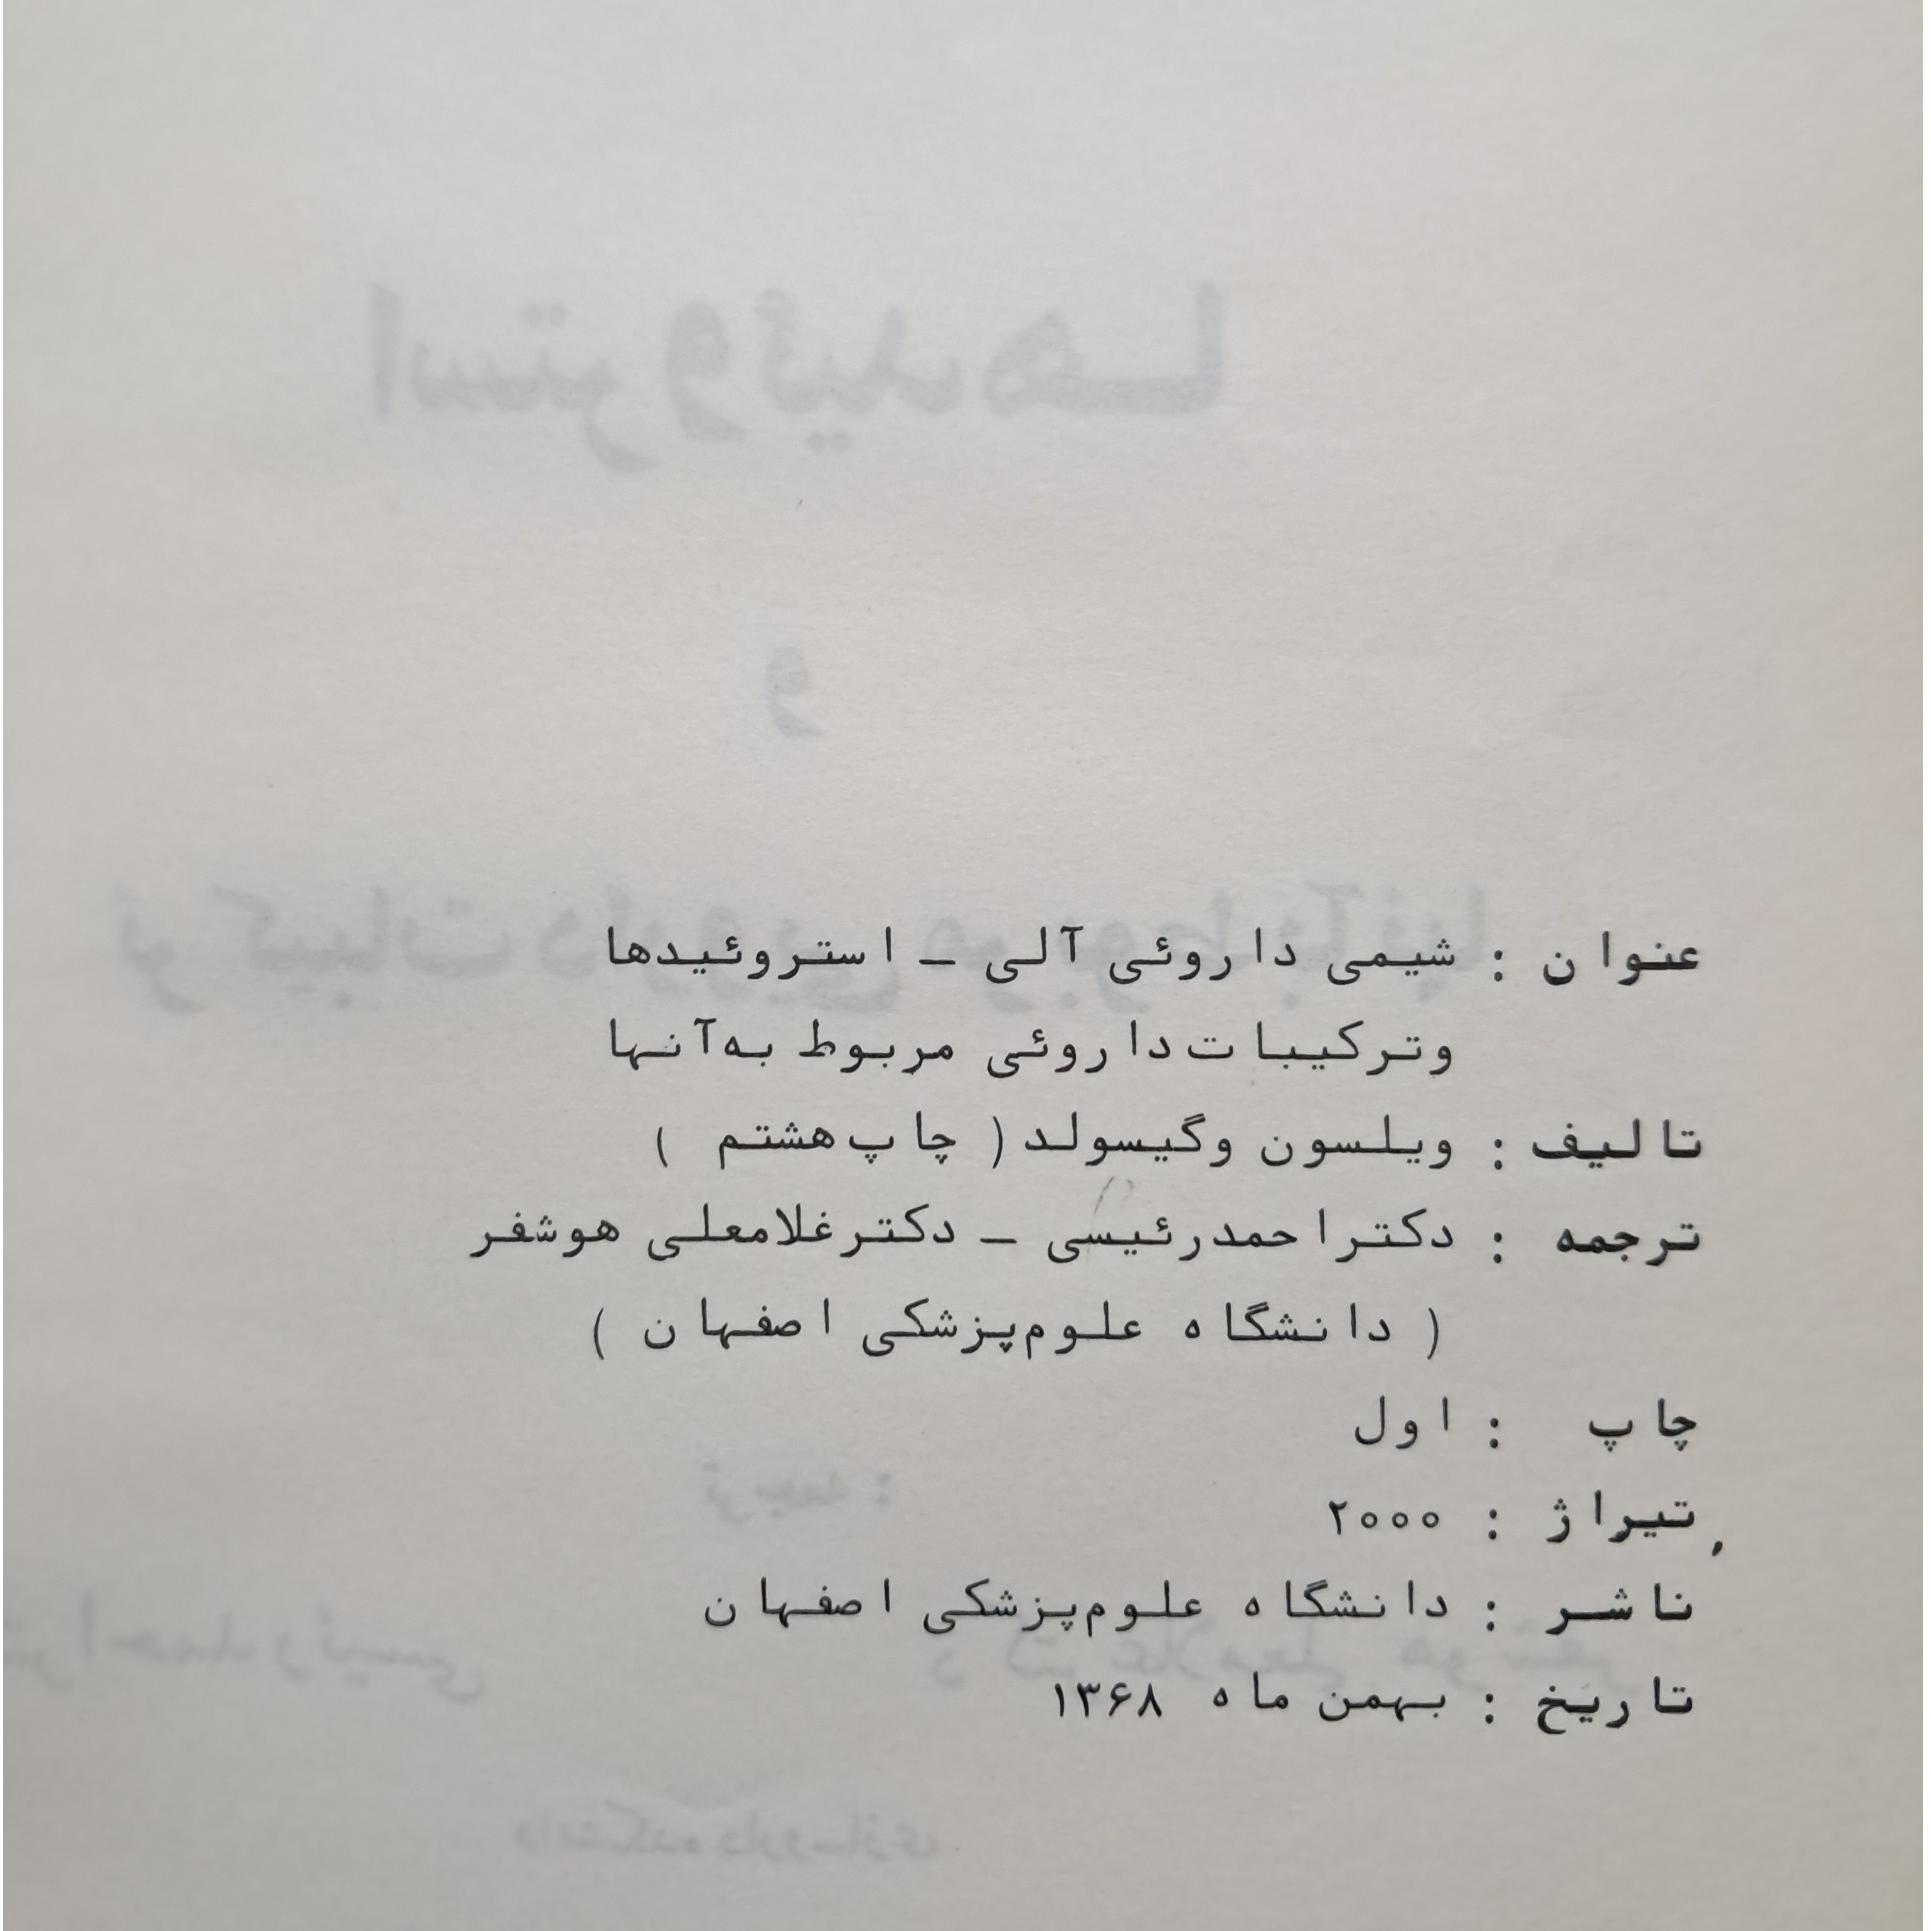 عنوان : شیمی داروئی آلی ـ استروئیدها
وترکیبات داروئی مربوط به‌آنها
تالیف : ویلسون وگیسولد ( چاپ هشتم )
ترجمه : دکتراحمدرئیسی ـ دکترغلامعلی هوشفر
( دانشگاه علوم‌پزشکی اصفهان )
چاپ : اول
تیراژ : ۲۰۰۰
ناشر : دانشگاه علوم‌پزشکی اصفهان
تاریخ : بهمن ماه ۱۳۶۸